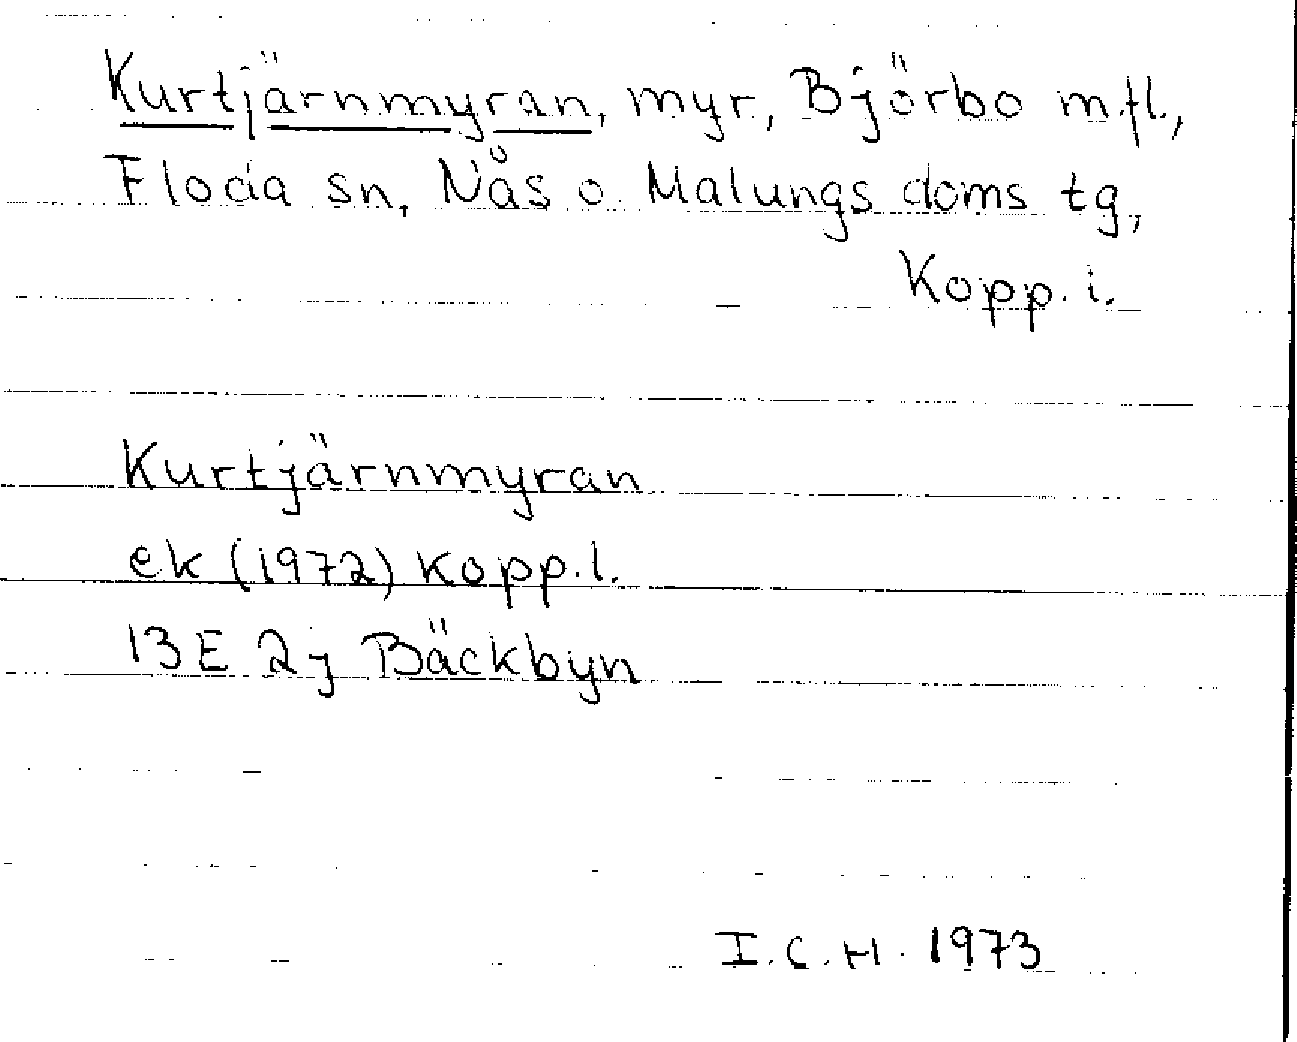 Kurtjärnmyran, myr, Björbo m.fl.,
Floda sn, Nås o. Malungs doms tg,
Kopp. l.
Kurtjärnmyran
ek (1972) Kopp. l.
13E 2j Bäckbyn
I.C.H. 1973